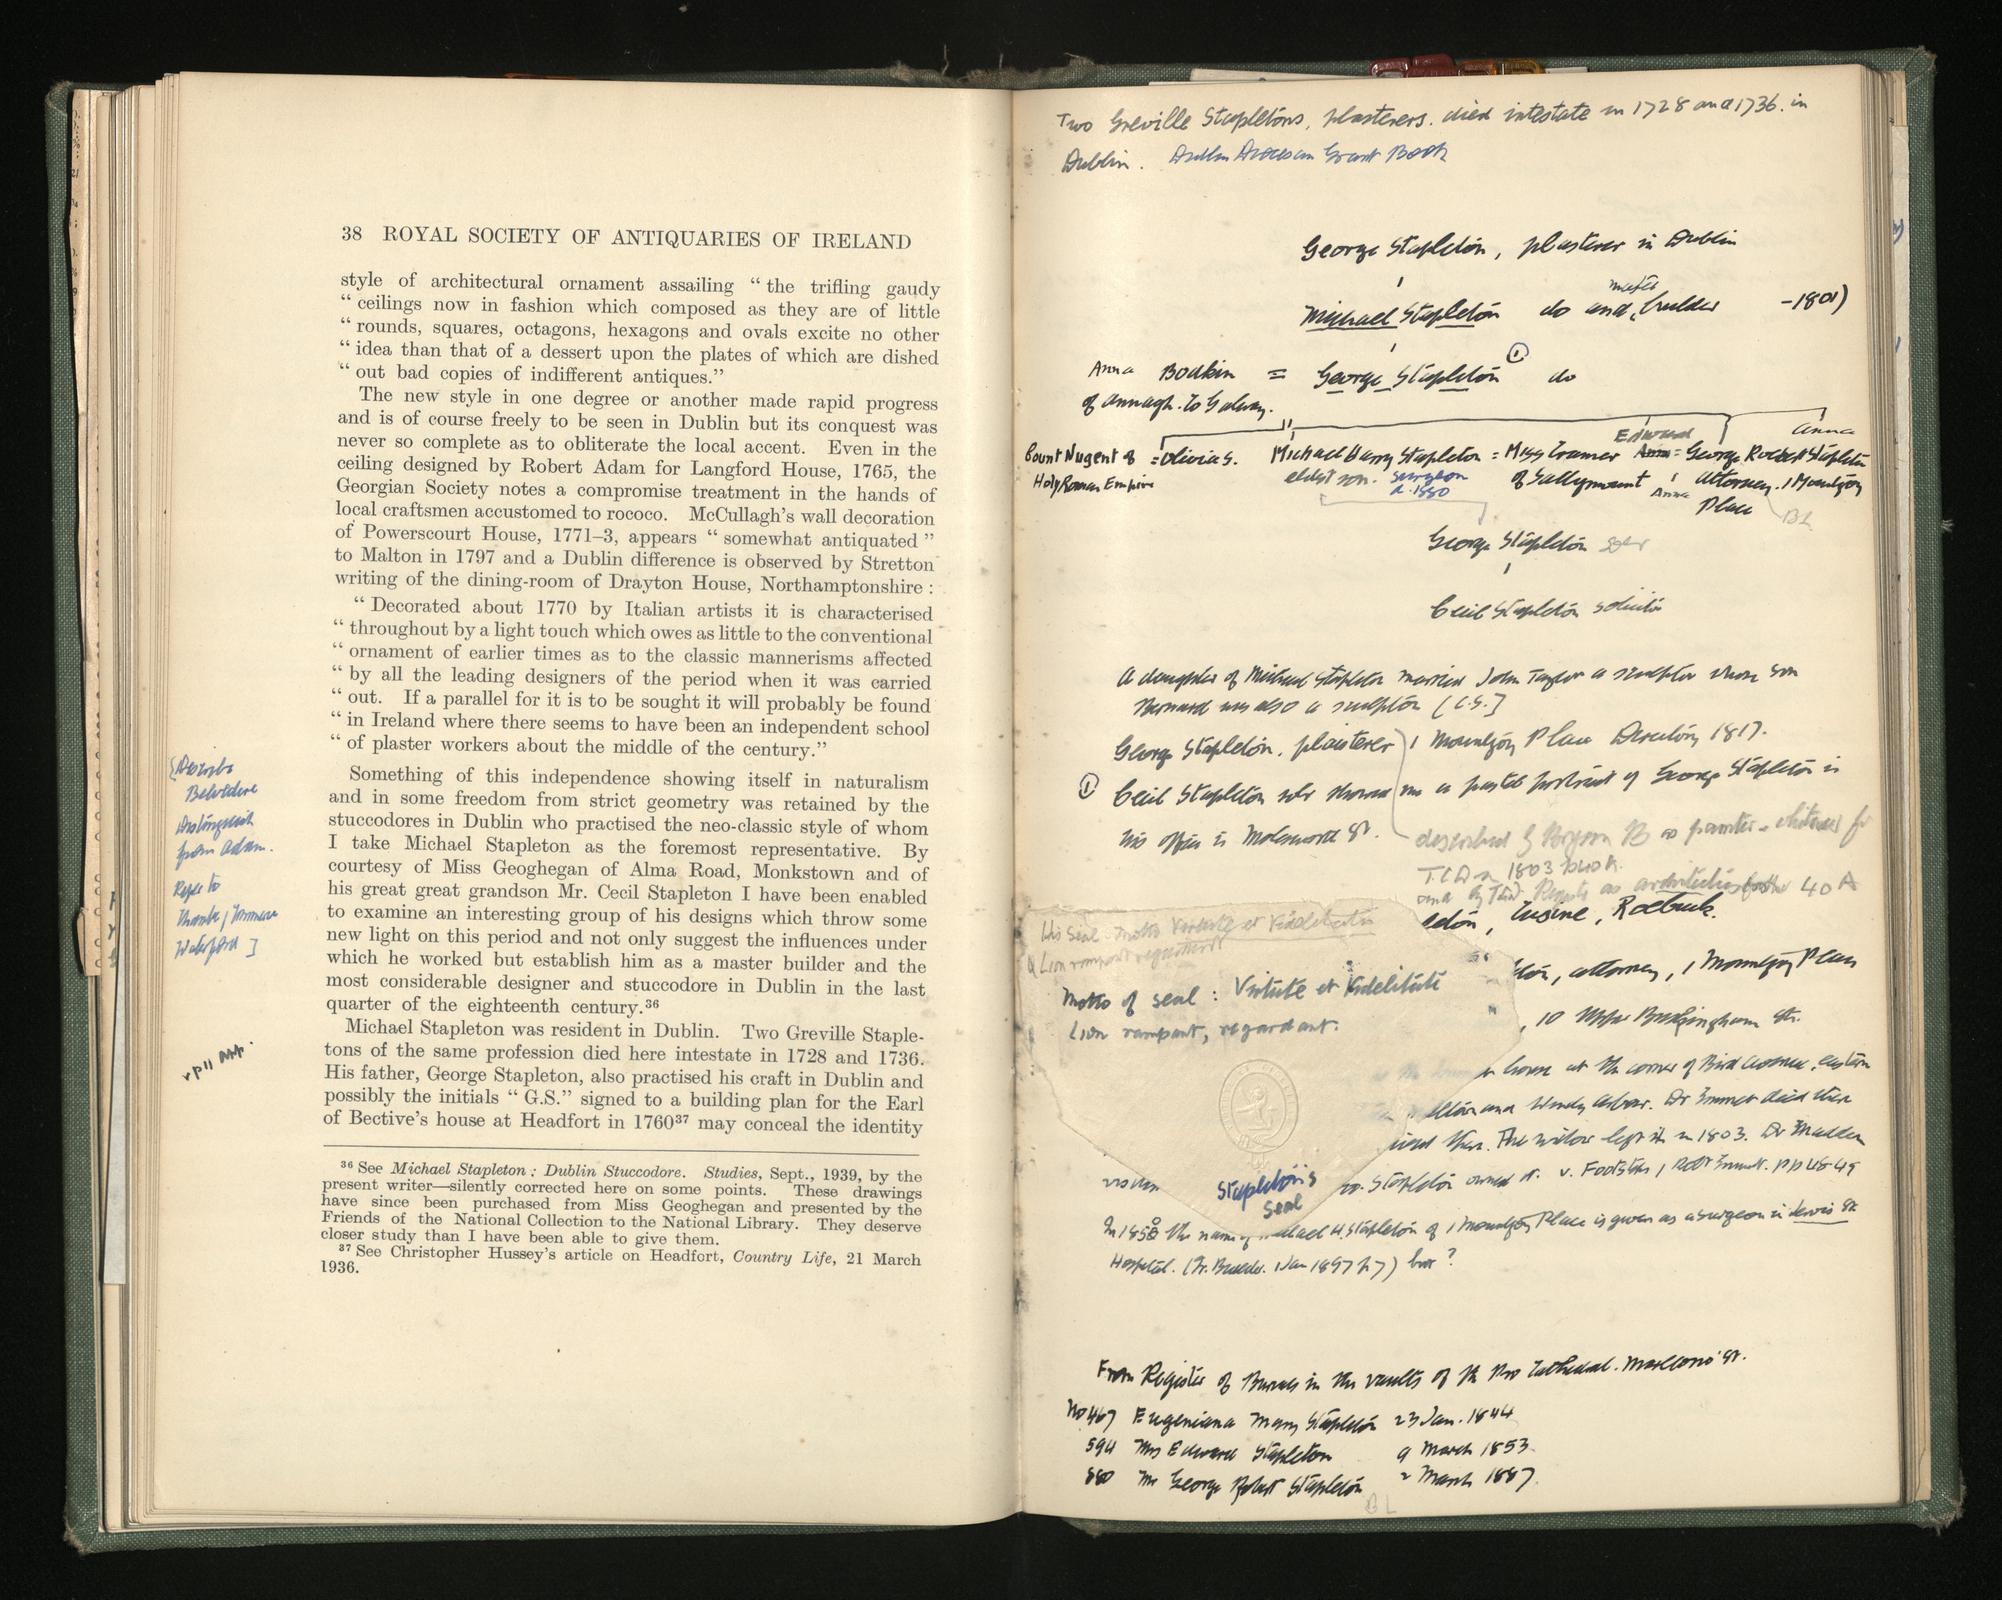 38 ROYAL SOCIETY OF ANTIQUARIES OF IRELAND
style of architectural ornament assailing “ the trifling gaudy
“ ceilings now in fashion which composed as they are of little
“ rounds, squares, octagons, hexagons and ovals excite no other
“ idea than that of a dessert upon the plates of which are dished
“ out bad copies of indifferent antiques.”
The new style in one degree or another made rapid progress
and is of course freely to be seen in Dublin but its conquest was
never so complete as to obliterate the local accent. Even in the
ceiling designed by Robert Adam for Langford House, 1765, the
Georgian Society notes a compromise treatment in the hands of
local craftsmen accustomed to rococo. McCullagh’s wall decoration
of Powerscourt House, 1771–3, appears “ somewhat antiquated ”
to Malton in 1797 and a Dublin difference is observed by Stretton
writing of the dining-room of Drayton House, Northamptonshire :
“ Decorated about 1770 by Italian artists it is characterised
“ throughout by a light touch which owes as little to the conventional
“ ornament of earlier times as to the classic mannerisms affected
“ by all the leading designers of the period when it was carried
“ out. If a parallel for it is to be sought it will probably be found
“ in Ireland where there seems to have been an independent school
“ of plaster workers about the middle of the century.”
Something of this independence showing itself in naturalism
and in some freedom from strict geometry was retained by the
stuccodores in Dublin who practised the neo-classic style of whom
I take Michael Stapleton as the foremost representative. By
courtesy of Miss Geoghegan of Alma Road, Monkstown and of
his great great grandson Mr. Cecil Stapleton I have been enabled
to examine an interesting group of his designs which throw some
new light on this period and not only suggest the influences under
which he worked but establish him as a master builder and the
most considerable designer and stuccodore in Dublin in the last
quarter of the eighteenth century.36
Michael Stapleton was resident in Dublin. Two Greville Staple-
tons of the same profession died here intestate in 1728 and 1736.
His father, George Stapleton, also practised his craft in Dublin and
possibly the initials “ G.S.” signed to a building plan for the Earl
of Bective’s house at Headfort in 176037 may conceal the identity
36 See Michael Stapleton : Dublin Stuccodore. Studies, Sept., 1939, by the
present writer—silently corrected here on some points. These drawings
have since been purchased from Miss Geoghegan and presented by the
Friends of the National Collection to the National Library. They deserve
closer study than I have been able to give them.
37 See Christopher Hussey’s article on Headfort, Country Life, 21 March
1936.
Describe
Belvedere
distinguish
from Adam.
Refer to
Waterford ]
Two Greville Stapletons, plasterers. died intestate in 1728 and 1736. in
Dublin. Dublin Diocesan Grant Book
George Stapleton, plasterer in Dublin
master
Michael Stapleton do and builder -1801)
Anna Bodkin = George Stapleton ① do
of Annagh. Co Galway.
Edward Anna
Count Nugent of = Olivia S. Michael Harry Stapleton = Miss Cramer Anna = George Robert Stapleton
Holy Roman Empire eldest son. surgeon of Sallymount Anna attorney. 1 Mountjoy
d. 1880 Place BL
George Stapleton solr
Cecil Stapleton solicitor
A daughter of Michael Stapleton married John Taylor a sculptor whose son
Bernard was also a sculptor [C.S.]
George Stapleton, plaisterer 1 Mountjoy Place Directory 1817.
① Cecil Stapleton solr showed me a pastel portrait of George Stapleton in
his office in Molesworth St.
described as painter
TCD in 1803
eton, Eugene, Roebuck.
His Seal motto Virtute et Fidelitate
Lion rampant regardant
Motto of seal : Virtute et Fidelitate
Lion rampant, regardant.
ton, attorney, 1 Mountjoy Place
, 10 Upper Buckingham St.
house at the corner of Bird Avenue, eastern
and Windy Arbour. Dr Emmet died there
there. The widow left it in 1803. Dr Madden
Stapleton's
seal
Stapleton owned it. v. Footsteps / Robt Emmet. pp 48-49
In 1858 the name of Michael H. Stapleton of 1 Mountjoy Place is given as a surgeon in Jervis St
Hospital. (Ir. Builder. 1 Jan 1897 p.7) bro ?
From Register of Burials in the vaults of the Pro Cathedral. Marlboro' St.
No 467 Eugeniana Mary Stapleton 23 Jan. 1844
594 Mrs Edward Stapleton 9 March 1853.
880 Mr George Robert Stapleton 2 March 1887.
BL